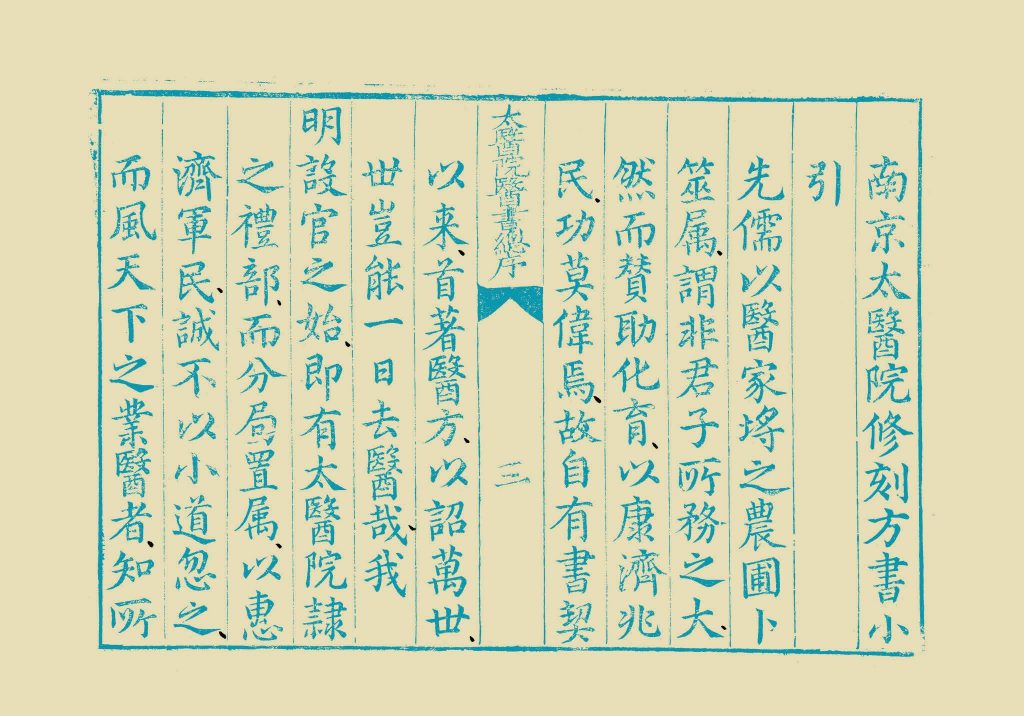 南京太醫院修刻方書小
引
先儒以醫家埒之農圃卜
筮属、謂非君子所務之大、
然而賛助化育、以康濟兆
民、功莫偉焉、故自有書契
太醫院醫書總序
三
以来、首著醫方、以詔萬世、
世豈能一日去醫哉、我
明設官之始、即有太醫院隷
之禮部、而分局置属、以惠
濟軍民、誠不以小道忽之、
而風天下之業醫者、知所